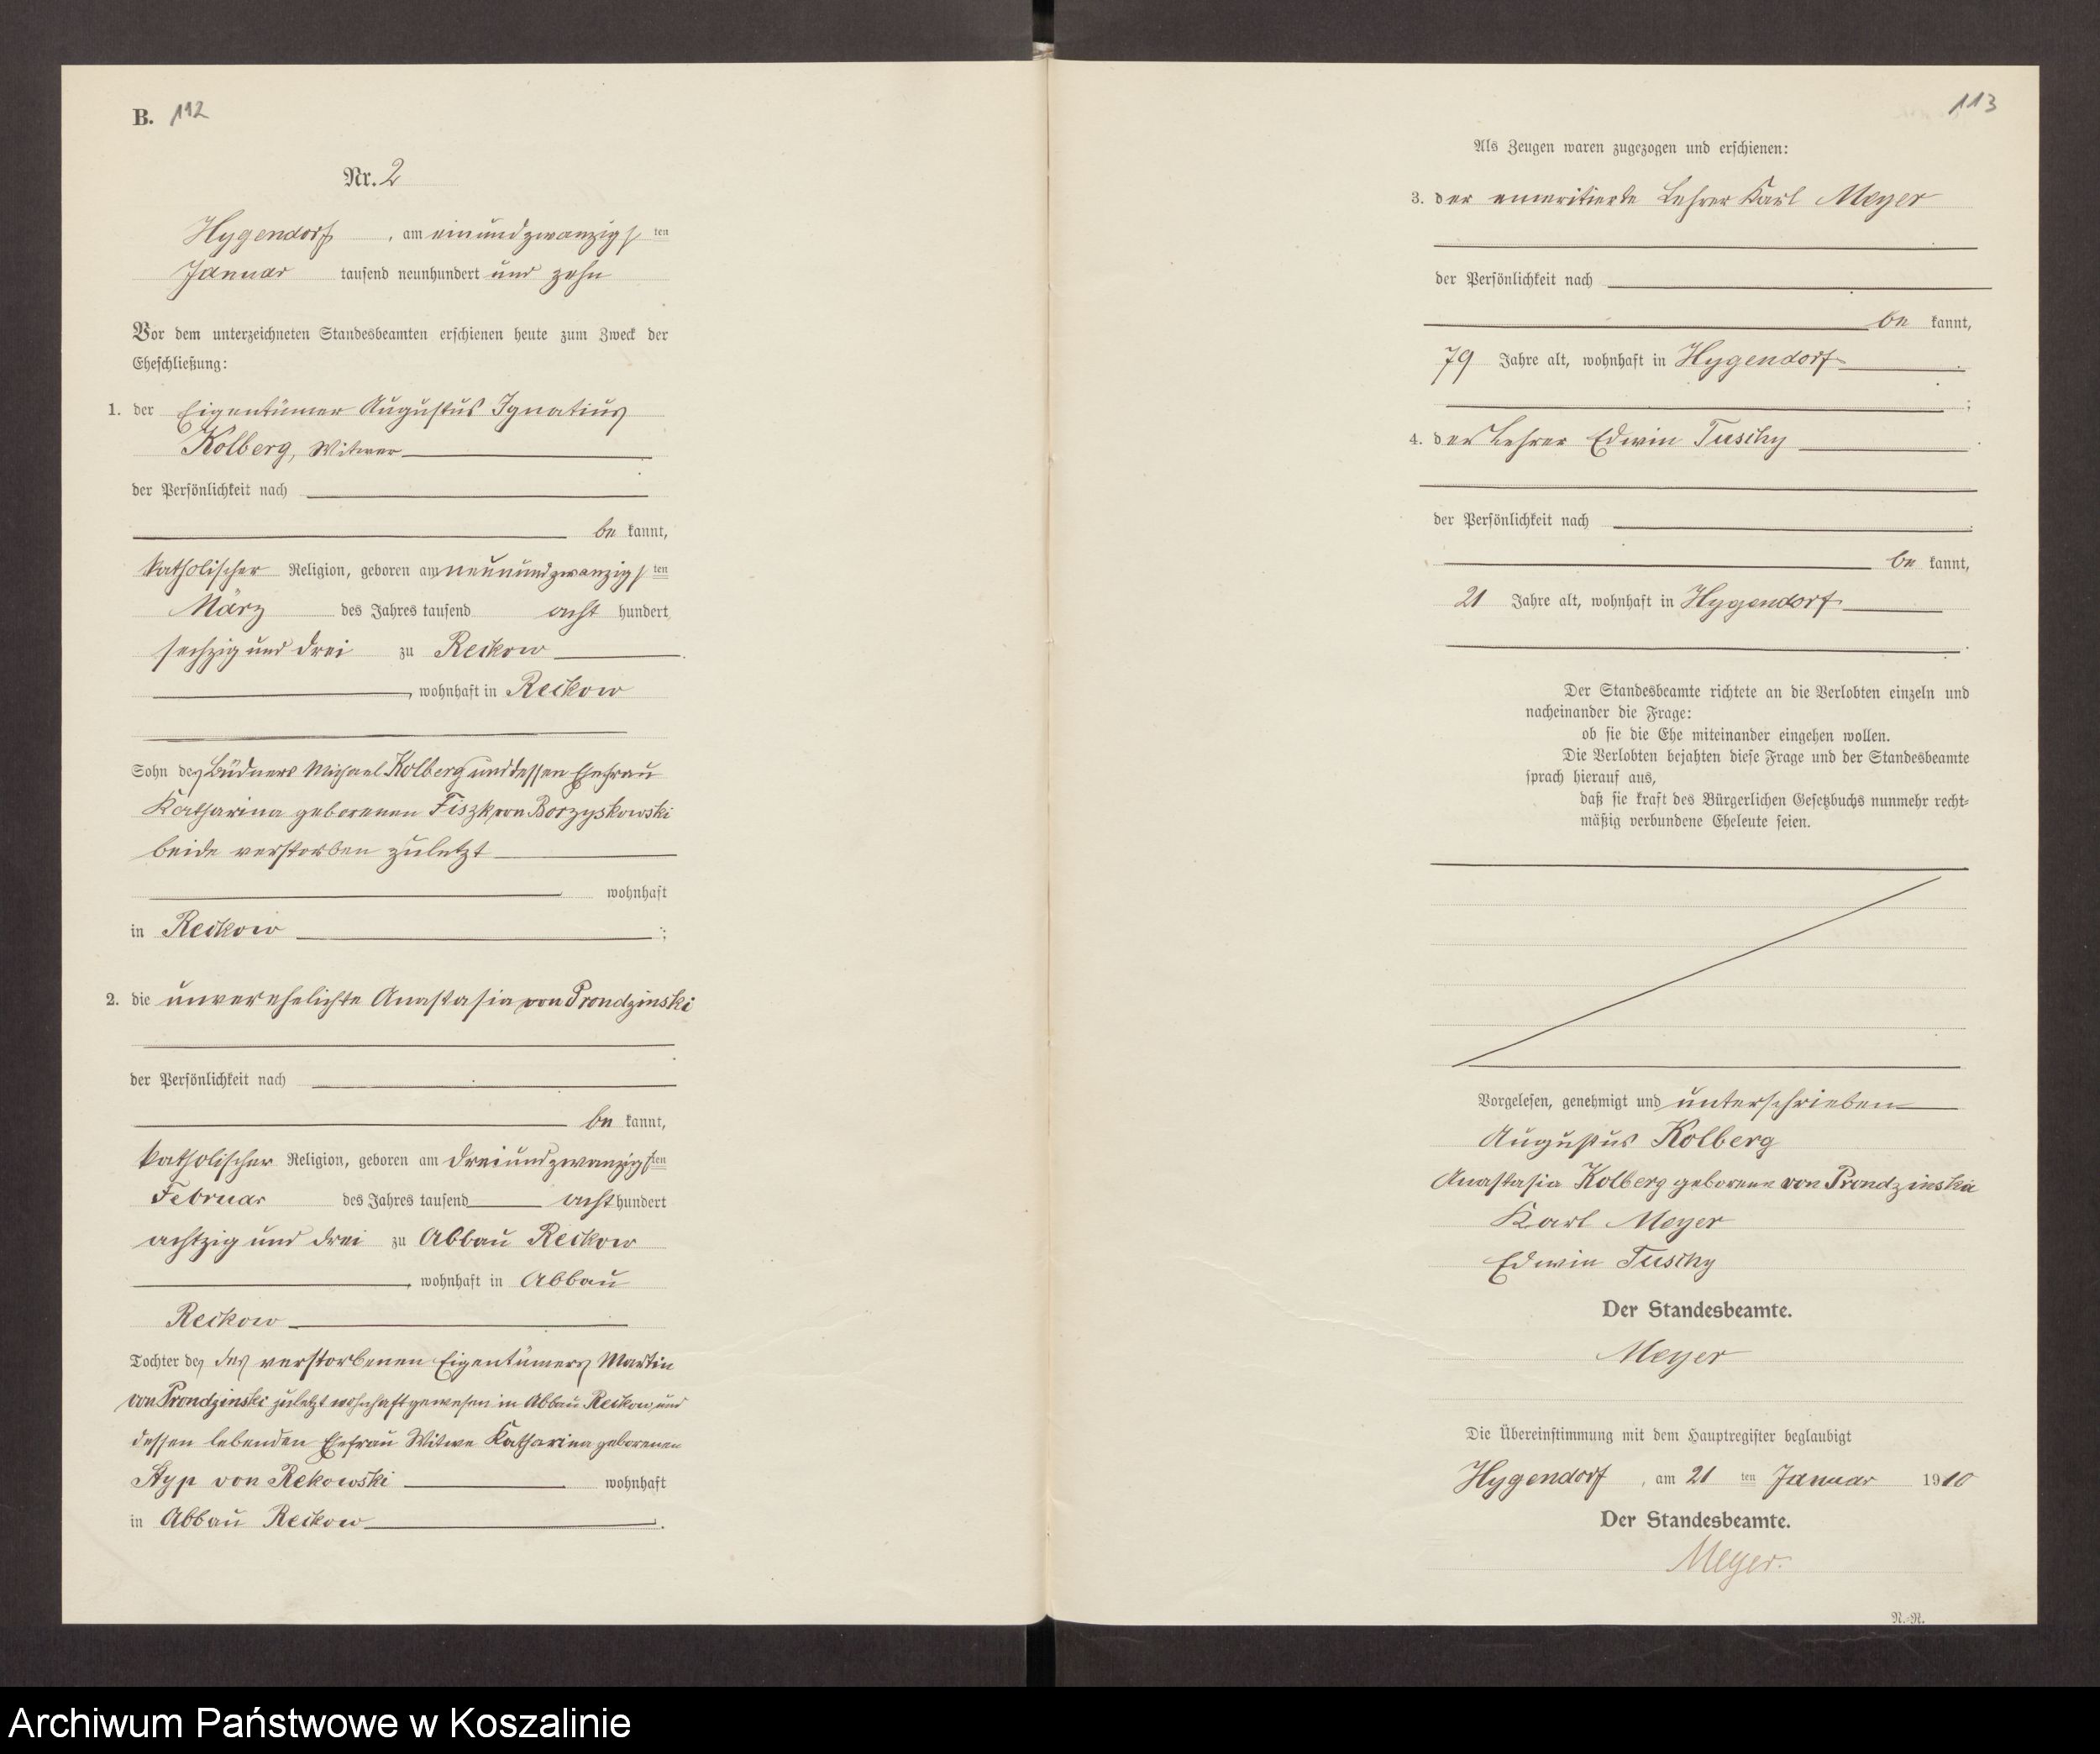 B. 112
Nr. 2
Hygendorf, am einundzwanzigsten
Januar tausend neunhundert und zehn
Vor dem unterzeichneten Standesbeamten erschienen heute zum Zweck der
Eheschließung:
1. der Eigentümer Augustus Ignatius
Kolberg, Witwer
der Persönlichkeit nach
be kannt,
katholischer Religion, geboren am neunundzwanzigsten
März des Jahres tausend acht hundert
sechzig und drei zu Reckow
, wohnhaft in Reckow
Sohn des Büdners Michael Kolberg und dessen Ehefrau
Katharina geborenen Fiszk von Borzyskowski
beide verstorben zuletzt
wohnhaft
in Reckow ;
2. die unverehelichte Anastasia von Prondzinski
der Persönlichkeit nach
be kannt,
katholischer Religion, geboren am dreiundzwanzigsten
Februar des Jahres tausend acht hundert
achtzig und drei zu Abbau Reckow
, wohnhaft in Abbau
Reckow
Tochter des des verstorbenen Eigentümers Martin
von Prondzinski zuletzt wohnhaft gewesen in Abbau Reckow und
dessen lebenden Ehefrau Witwe Katharina geborenen
Styp von Rekowski wohnhaft
in Abbau Reckow .
113
Als Zeugen waren zugezogen und erschienen:
3. der emeritierte Lehrer Karl Meyer
der Persönlichkeit nach
be kannt,
79 Jahre alt, wohnhaft in Hygendorf
;
4. der Lehrer Edwin Tuschy
der Persönlichkeit nach
be kannt,
21 Jahre alt, wohnhaft in Hygendorf
.
Der Standesbeamte richtete an die Verlobten einzeln und
nacheinander die Frage:
ob sie die Ehe miteinander eingehen wollen.
Die Verlobten bejahten diese Frage und der Standesbeamte
sprach hierauf aus,
daß sie kraft des Bürgerlichen Gesetzbuchs nunmehr recht-
mäßig verbundene Eheleute seien.
Vorgelesen, genehmigt und unterschrieben
Augustus Kolberg
Anastasia Kolberg geborene von Prondzinska
Karl Meyer
Edwin Tuschy
Der Standesbeamte.
Meyer
Die Übereinstimmung mit dem Hauptregister beglaubigt
Hygendorf, am 21 ten Januar 1910
Der Standesbeamte.
Meyer.
N.-N.
Archiwum Państwowe w Koszalinie